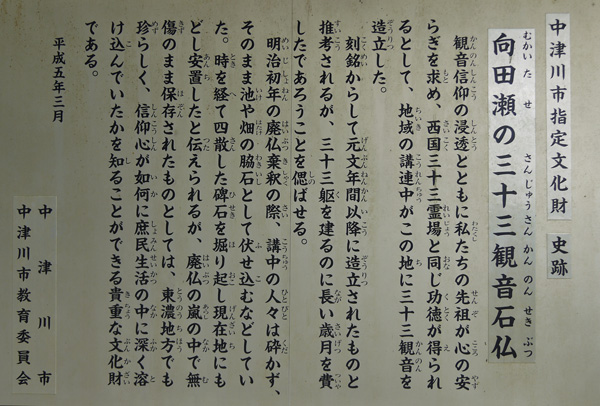 中津川市指定文化財 史跡
向田瀬の三十三観音石仏
観音信仰の浸透とともに私たちの先祖が心の安
らぎを求め、西国三十三霊場と同じ功徳が得られ
るとして、地域の講連中がこの地に三十三観音を
造立した。
刻銘からして元文年間以降に造立されたものと
推考されるが、三十三躯を建るのに長い歳月を費
したであろうことを偲ばせる。
明治初年の廃仏棄釈の際、講中の人々は砕かず、
そのまま池や畑の脇石として伏せ込むなどしてい
た。時を経て四散した碑石を掘り起し現在地にも
どし安置したと伝えられるが、廃仏の嵐の中で無
傷のまま保存されたものとしては、東濃地方でも
珍らしく、信仰心が如何に庶民生活の中に深く溶
け込んでいたかを知ることができる貴重な文化財
である。
平成五年三月
中津川市
中津川市教育委員会